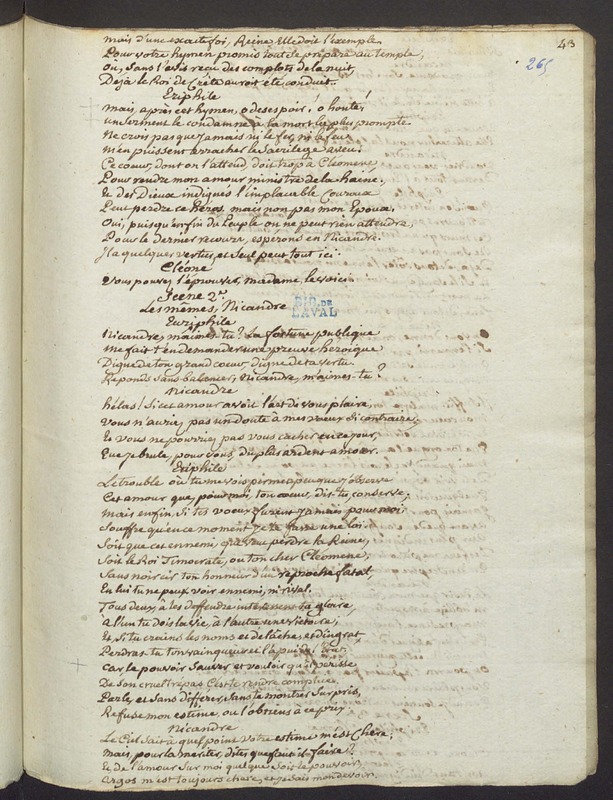 43
265
mais d'une exacte foi, Reine Elle doit l'exemple.
Pour votre hymen promis tout se prépare au temple,
Où, Sans l'avis reçu des complots de la nuit,
Deja le Roi de Crête auroit été conduit.
Eriphile
mais, après cet hymen, o desespoir! o honte!
un Serment le condamne à la mort la plus prompte.
Ne crois pas que jamais ni le fer, ni le feu
M'en puissent arracher le Sacrilege aveu.
Ce coeur, dont on l'attend, doit trop à Cleomene,
Pour rendre mon amour ministre de la Haine.
Et des Dieux indignés l'implacable Couroux
Peut perdre ce héros, mais non pas mon Epoux.
Oui, puisqu'enfin du Peuple on ne peut rien attendre,
Pour le dernier recours, esperons en Nicandre.
Il a quelques vertus, et Seul peut tout ici.
Cleone
Vous pouvez l'éprouver, madame, le voici.
Scene 2e.
Les mêmes, Nicandre
Euriphile
BIB. DE LAVAL
Nicandre, m'aimes-tu? La fortune publique
me fait t'en demander une preuve heroique
Digne de ton grand coeur, digne de ta vertu.
Reponds Sans balancer, Nicandre, m'aimes-tu?
Nicandre
hélas! Si cet amour avoit l'art de vous plaire,
Vous n'auriez pas un doute à mes voeux si contraire;
Et vous ne pourriez pas vous cacher en ce jour,
Que je brule, pour vous, du plus ardent amour.
Eriphile
Le trouble où tu me vois permet peu que j'observe
Cet amour que, pour moi, ton coeur, dis-tu, conserve;
Mais enfin, Si tes voeux furent jamais pour moi
Souffre qu'en ce moment je te fasse une loi.
Soit que cet ennemi, que veut perdre la Reine,
Soit le Roi Timocrate, ou ton cher Cleomene,
Sans noircir ton honneur d'un reproche fatal,
En lui tu ne peux voir ennemi, ni rival.
Tous deux, à les deffendre interessent ta gloire,
à l'un tu dois la vie, à l'autre une victoire;
Et, Si tu crains les noms et de lâche, et d'ingrat
Perdras-tu ton vainqueur et l'appui de l'Etat
Car le pouvoir Sauver et vouloir qu'il perisse
De Son cruel trepas C'est te rendre complice.
Parle, et Sans differer, Sans te montrer Surpris,
Refuse mon estime, ou l'obtiens à ce prix.
Nicandre
Le Ciel Sait à quel point votre estime m'est Chere;
mais, pour la meriter, dites que faut-il faire?
Et de l'amour Sur moi quelque Soit le pouvoir,
Argos m'est toujours chere, et je Sais mon devoir.